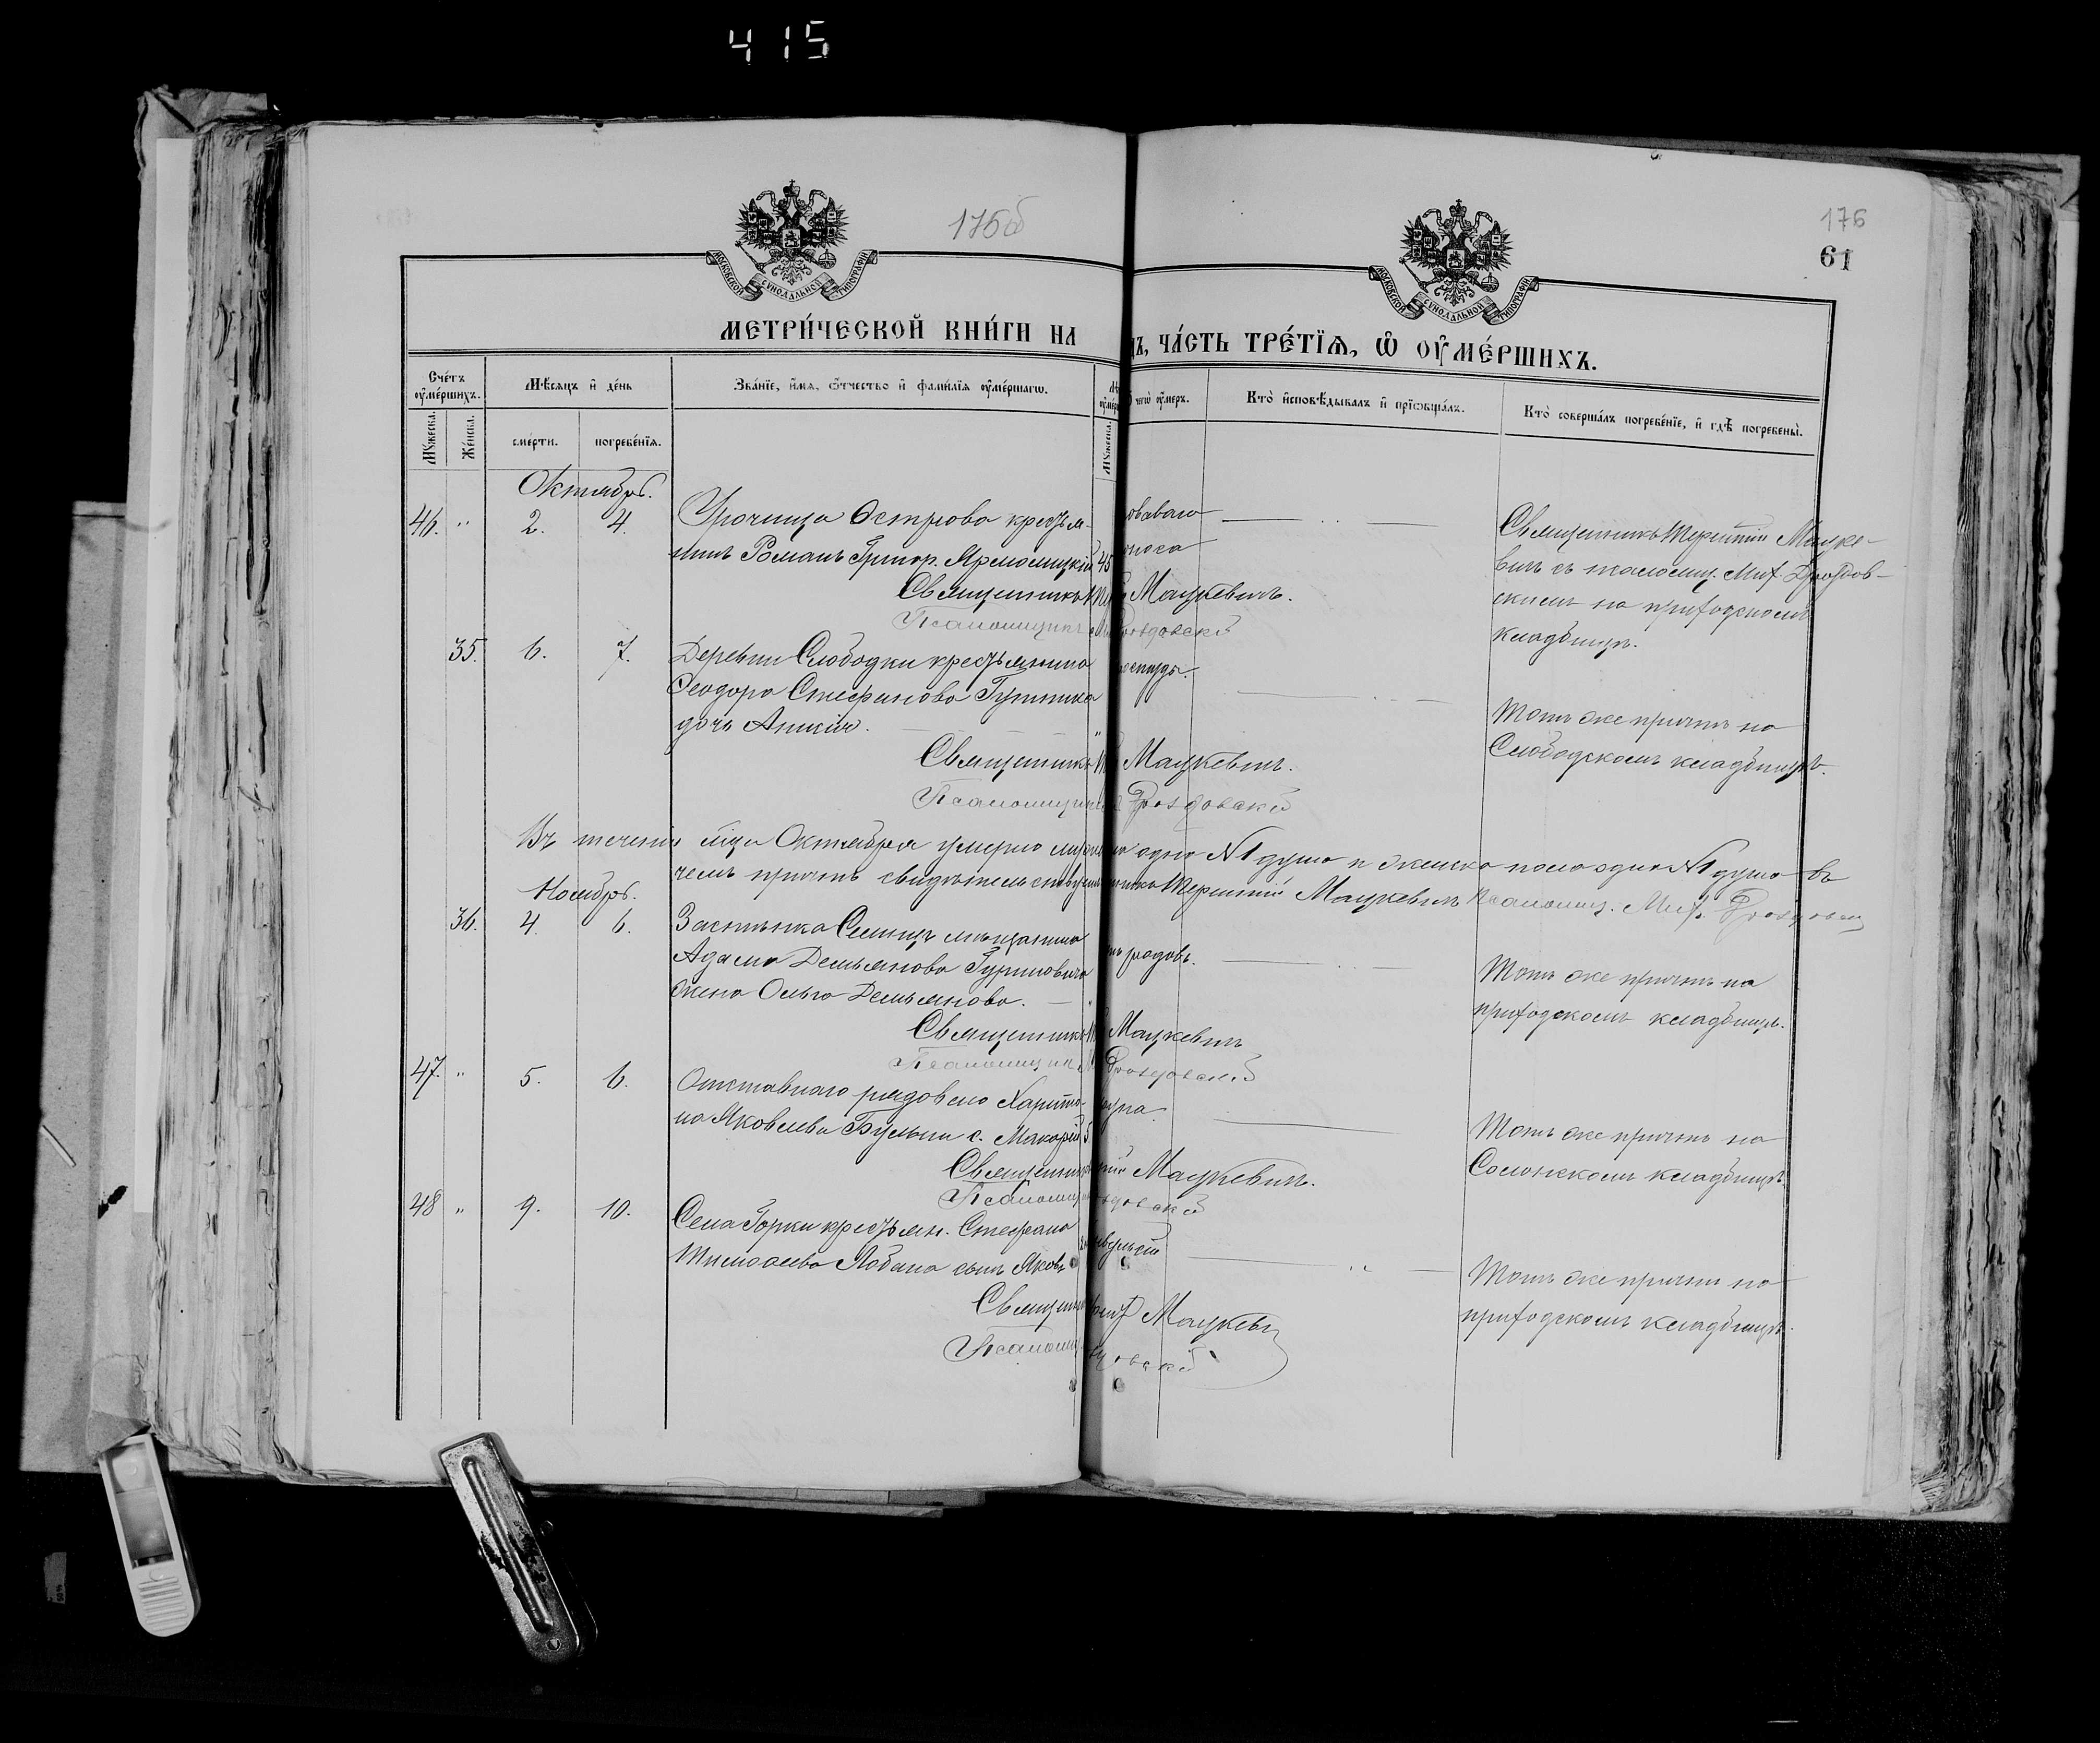 415
175об
176
61
МОСКОВСКОЙ СѴНОДАЛЬНОЙ ТИПОГРАФІИ
МОСКОВСКОЙ СѴНОДАЛЬНОЙ ТИПОГРАФІИ
МЕТРИ́ЧЕСКОЙ КНИ́ГИ НА
ДЪ, ЧА́СТЬ ТРЕ́ТЇѦ, Ѡ҆ ОУ҆МЕ́РШИХЪ.
Сче́тъ оу҆ме́ршихъ.
Мѣ́сяцъ и҆ де́нь
Зва́нїе, и҆́мя, ѻ҆́тчество и҆ фами́лїя оу҆ме́ршагѡ.
чегѡ̀ оу҆́меръ.
Кто̀ и҆сповѣ́дывалъ и҆ прїѡбща́лъ.
Кто̀ соверша́лъ погребе́нїе, и҆ гдѣ̀ погребены̀.
Мꙋ́жеска.
Же́нска.
сме́рти.
погребе́нїя.
Мꙋ́жеска.
Октябрь.
46. " 2. 4. Урочища Острова крестья-
нинъ Романъ Григор. Ярмолицкій 45
Священникъ Мацкевичъ.
Псаломщикъ
Священникъ Терентій Мацке-
вичъ съ псаломщ. Мих. Дроздов-
скимъ на приходскомъ
кладбищѣ.
35. 6. 7. Деревни Слободки крестьянина
Ѳеодора Стефанова
дочь
Священникъ Мацкевичъ.
Псаломщикъ Дроздовскій
Тотъ же причтъ на
Слободскомъ кладбищѣ.
Въ теченіи м-ца Октября умерло одна №1 душа и женска пола одна №1 душа въ
чемъ причтъ свидѣтельствуетъ Терентій Мацкевичъ Псаломщ. Мих. Дроздовскій
Ноябрь.
36. 4. 6. Застѣнка Селищъ мѣщанина
Адама Демьянова Гуриновича
жена Ольга Демьянова.
родовъ.
Священникъ Мацкевичъ
Псаломщикъ Дроздовскій
Тотъ же причтъ на
приходскомъ кладбищѣ.
47. " 5. 6. Отставного рядового Харито-
на Яковлева с. Макарій 5
Священникъ Мацкевичъ.
Псаломщикъ
Тотъ же причтъ на
Солонскомъ кладбищѣ.
48 " 9. 10. Села Горки крестьян. Стефана
Тимоѳеева Лобана сынъ Яковъ
Священникъ Мацкевичъ
Псаломщикъ
Тотъ же причтъ на
приходскомъ кладбищѣ.